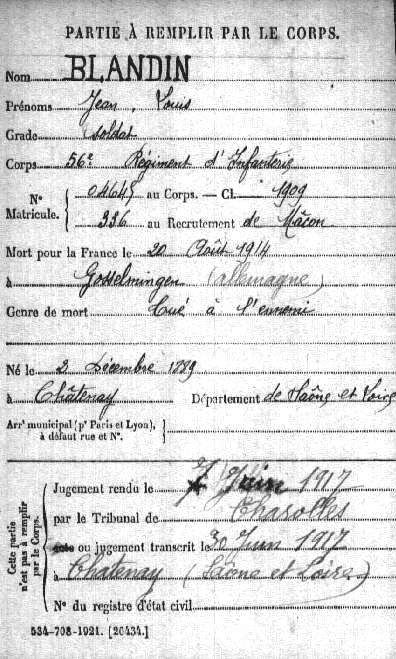 PARTIE À REMPLIR PAR LE CORPS.
Nom BLANDIN
Prénoms Jean, Louis
Grade Soldat
Corps 56e Régiment d'Infanterie
N° Matricule. { 04645 au Corps. — Cl. 1909
336 au Recrutement de Mâcon
Mort pour la France le 20 Août 1914
à Gosselmingen (allemagne)
Genre de mort Tué à l'ennemi
Né le 2 Décembre 1889
à Châtenay Département de Saône et Loire
Arrt municipal (pr Paris et Lyon), à défaut rue et N°. }
Cette partie n'est pas à remplir par le Corps. {
Jugement rendu le 7 Juin 1917
par le Tribunal de Charolles
acte ou jugement transcrit le 30 Juin 1917
à Chatenay (Saône et Loire)
N° du registre d'état civil
534-708-1921. [26434.]